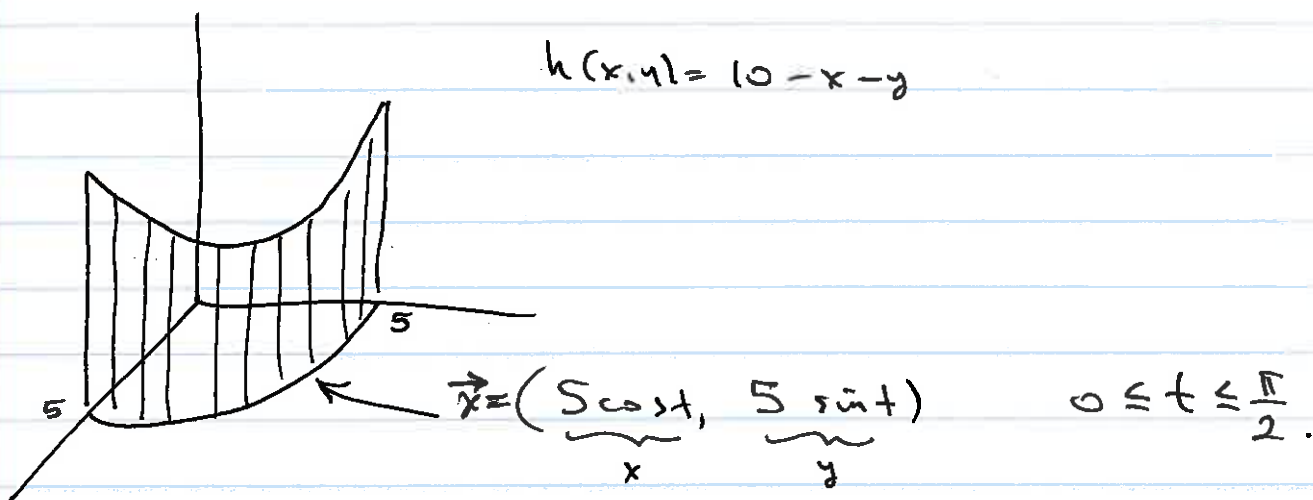 h(x,y) = 10 - x - y
5
5
x⃗ = (5 cos t, 5 sin t) 0 ≤ t ≤ π/2.
x y